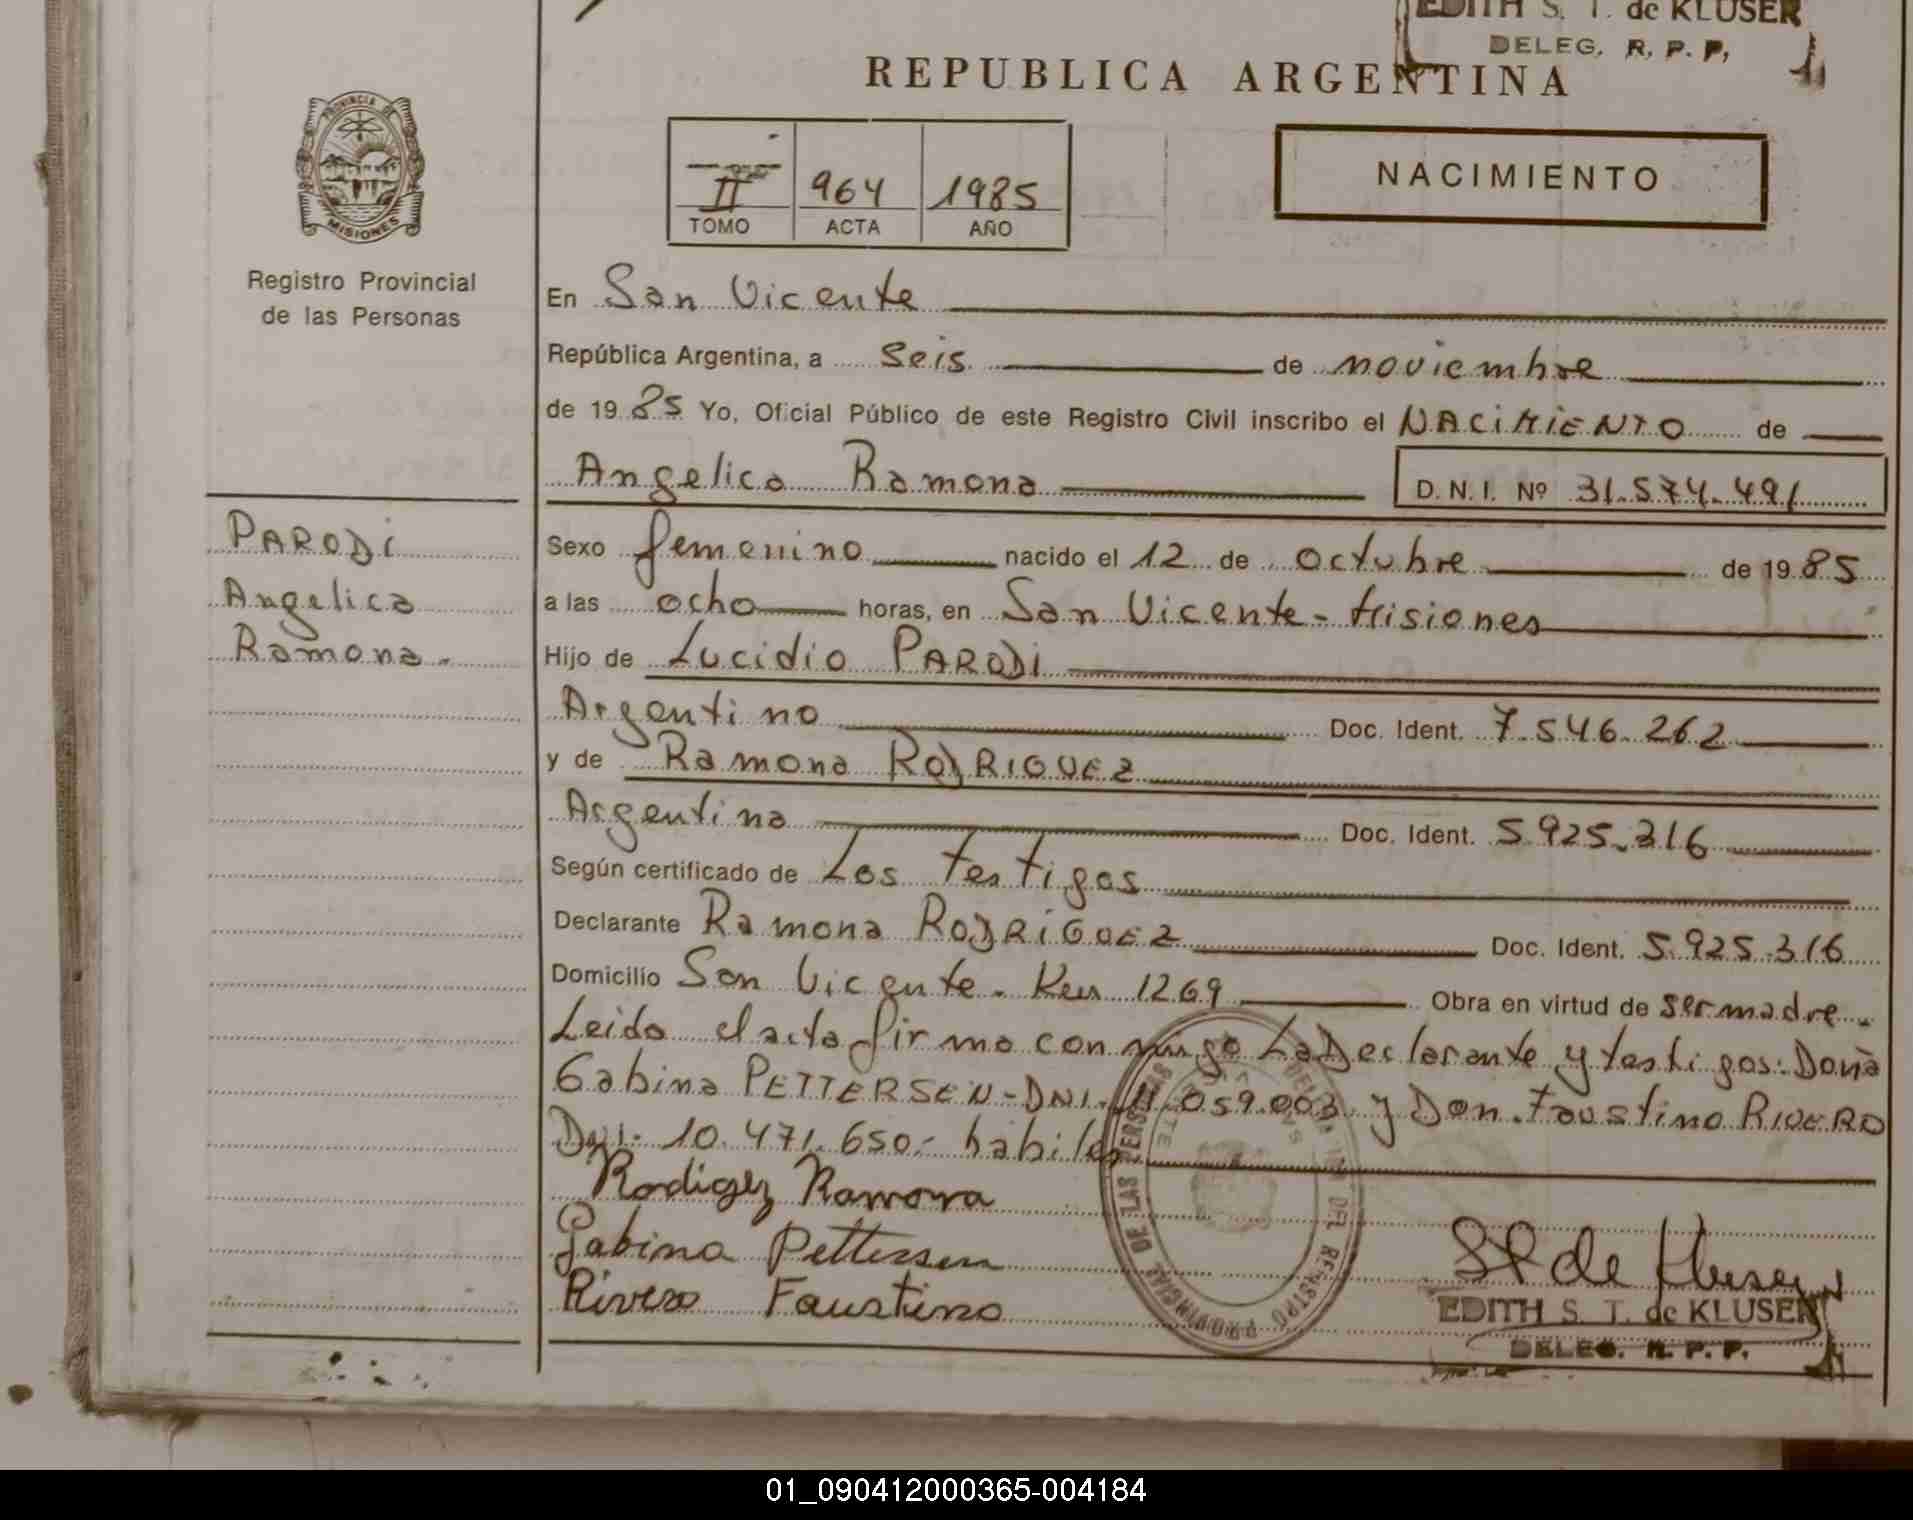 EDITH S. T. de KLUSER
DELEG. R. P. P.
REPUBLICA ARGENTINA
PROVINCIA DE
MISIONES
Registro Provincial
de las Personas
II 964 1985
TOMO ACTA AÑO
NACIMIENTO
En San Vicente
República Argentina, a seis de noviembre
de 19 85 Yo, Oficial Público de este Registro Civil inscribo el NACIMIENTO de
Angelica Ramona D. N. I. Nº 31.574.491
PARODI
Angelica
Ramona.-
Sexo femenino nacido el 12 de octubre de 19 85
a las ocho horas, en San Vicente - Misiones
Hijo de Lucidio PARODI
Argentino Doc. Ident. 7.546.262
y de Ramona RODRIGUEZ
Argentina Doc. Ident. 5.925.316
Según certificado de Los testigos
Declarante Ramona RODRIGUEZ Doc. Ident. 5.925.316
Domicilio San Vicente. Km 1269 Obra en virtud de ser madre.
Leida el acta firma conmigo La Declarante y testigos: Doña
Gabina PETTERSEN - DNI. 11.059.003 y Don. Faustino RIVERO
Dni. 10.471.650.- habiles
Rodigez Ramona
Gabina Pettersen
Rivero Faustino
PROVINCIAL DE LAS PERSONAS
DEL REGISTRO
ST de Kluser
EDITH S. T. de KLUSER
DELEG. R. P. P.
01_090412000365-004184